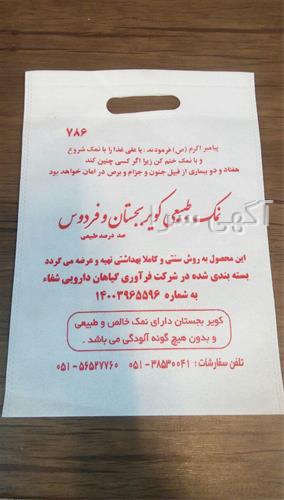 ۷۸۶
پیامبر اکرم (ص) فرمودند : یا علی غذا را با نمک شروع
و با نمک ختم کن زیرا اگر کسی چنین کند
هفتاد و دو بیماری از قبیل جنون و جزام و برص در امان خواهد بود
نمک طبیعی کویر بجستان و فردوس
صد درصد طبیعی
این محصول به روش سنتی و کاملا بهداشتی تهیه و عرضه می گردد
بسته بندی شده در شرکت فرآوری گیاهان دارویی شفاء
به شماره ۱۴۰۰۳۹۶۵۵۹۶
کویر بجستان دارای نمک خالص و طبیعی
و بدون هیچ گونه آلودگی می باشد .
تلفن سفارشات : ۳۸۵۳۰۰۴۱ - ۰۵۱ ۵۶۵۲۷۷۶۰ - ۰۵۱